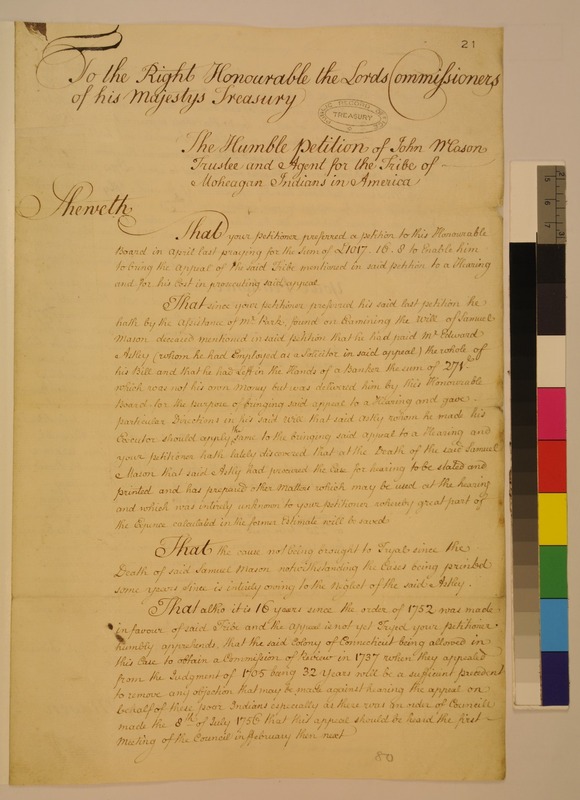 21
To the Right Honourable the Lords Commissioners
of his Majestys Treasury
PUBLIC RECORD OFFICE
TREASURY
The Humble Petition of John Mason
Trustee and Agent for the Tribe of
Moheagan Indians in America
Sheweth
That your petitioner preferred a petition to this Honourable
Board in April last praying for the Sum of £1017. 16. 8 to Enable him
to bring the Appeal of the said Tribe mentioned in said petition to a Hearing
and for his Cost in prosecuting said appeal
That since your petitioner preferred his said last petition he
hath by the Assistance of Mr. Park, found on Examining the Will of Samuel
Mason deceased mentioned in said petition that he had paid Mr. Edward
Astley (whom he had Employed as a Solicitor in said appeal) the whole of
his Bill and that he had Left in the Hands of a Banker the sum of 271£
which was not his own Money but was delivered him by this Honourable
Board for the purpose of bringing said appeal to a Hearing and gave
particular Directions in his said Will that said Astley whom he made his
Executor should apply the same to the bringing said appeal to a Hearing and
your petitioner hath lately discovered that at the Death of the said Samuel
Mason that said Astley had procured the Case for hearing to be stated and
printed and has prepared other Matters which may be used at the hearing
and which was intirely unknown to your petitioner whereby great part of
the Expence calculated in the former Estimate will be saved
That the cause not being brought to Tryal since the
Death of said Samuel Mason notwithstanding the Cases being printed
some years since is intirely owing to the Neglect of the said Astley.
That altho it is 16 years since the order of 1752 was made
in favour of said Tribe and the Appeal is not yet Tryed your petitioner
humbly apprehends, that the said Colony of Connecticut being allowed in
this Case to obtain a Commission of Review in 1737 when they appealed
from the Judgment of 1705 being 32 years will be a sufficient precedent
to remove any objection that may be made against hearing the appeal on
behalf of these poor Indians especially as there was an order of Council
made the 8th of July 1756 that this appeal should be heard the first
Meeting of the Council in February then next
80